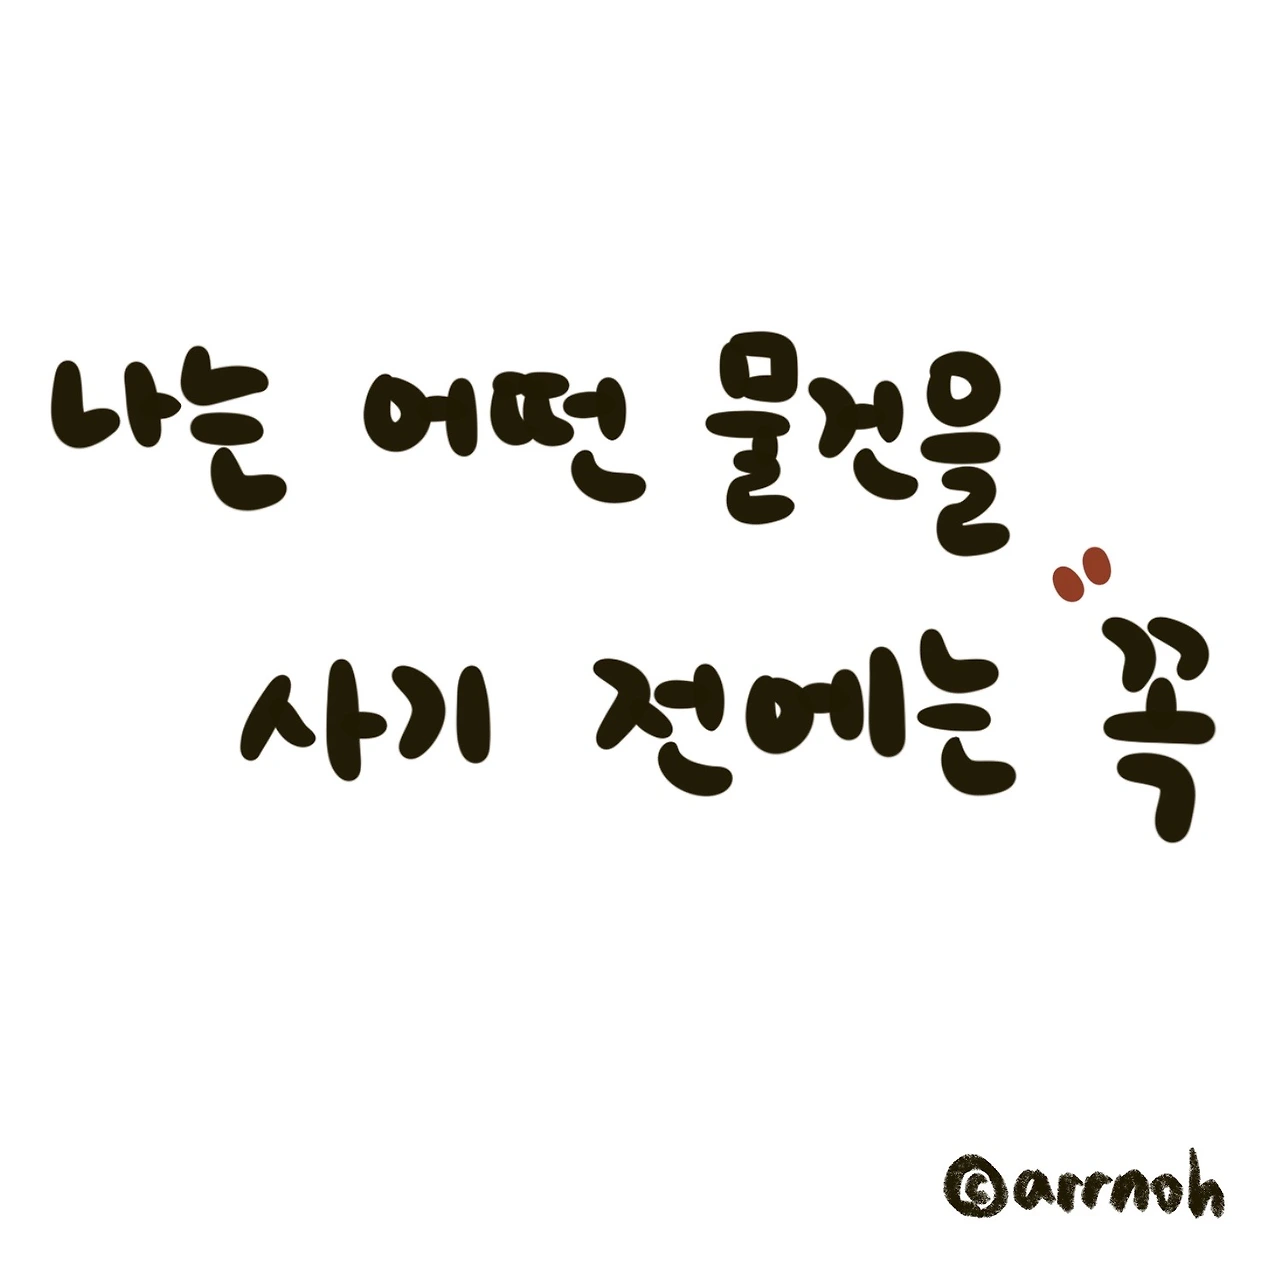 나는 어떤 물건을
사기 전에는 꼭
©arrnoh